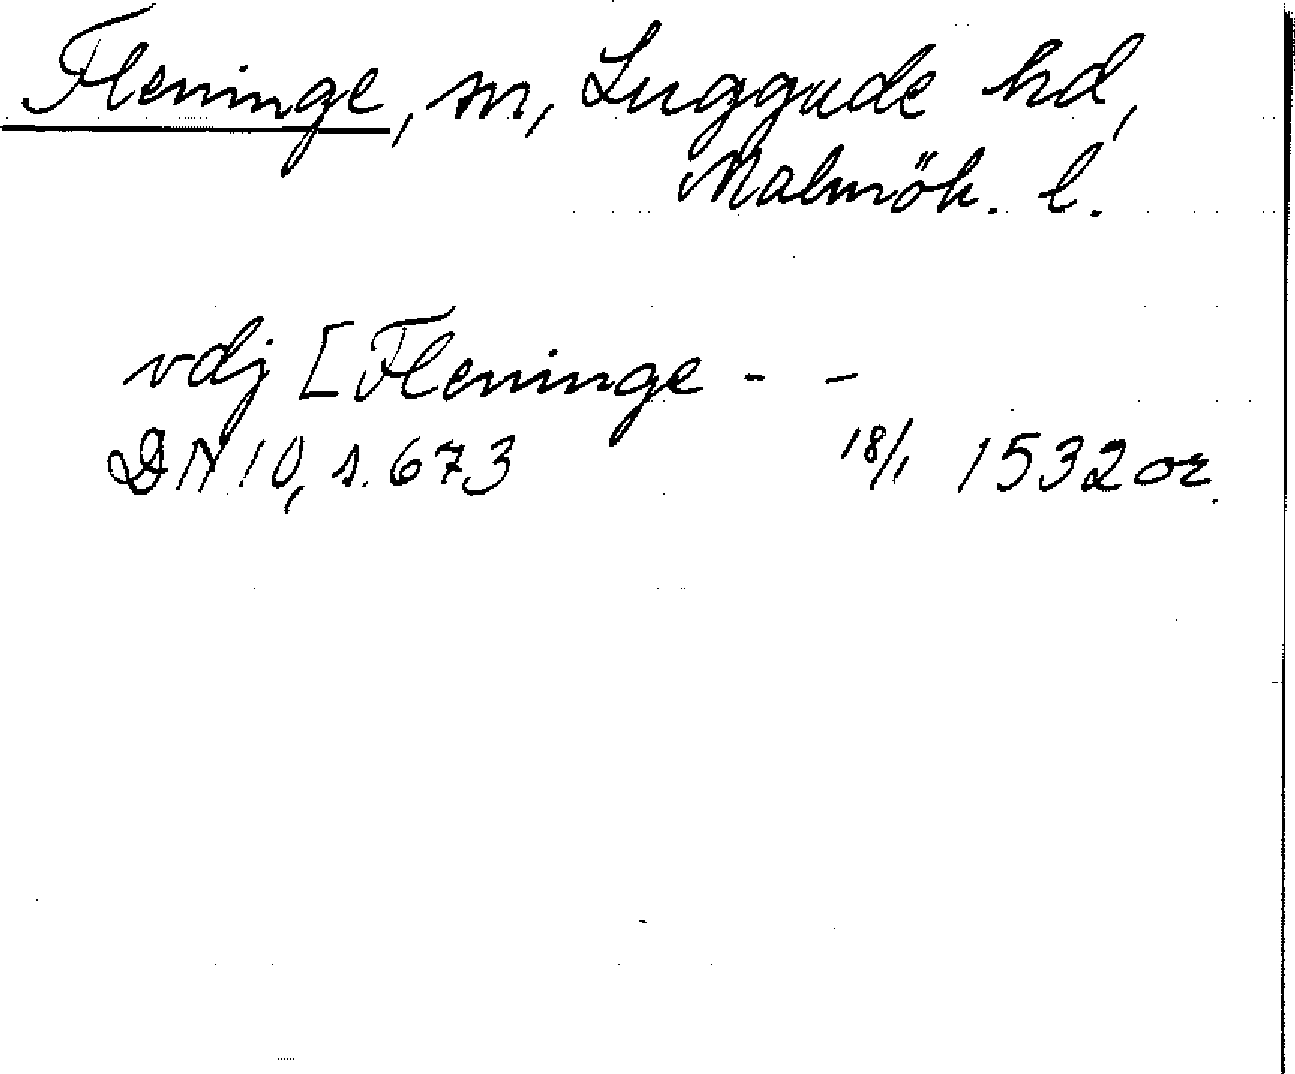 Fleninge, sn, Luggude hd,
Malmöh. l.
vdj [Fleninge - -
DN 10, s. 673 18/1 1532 or.